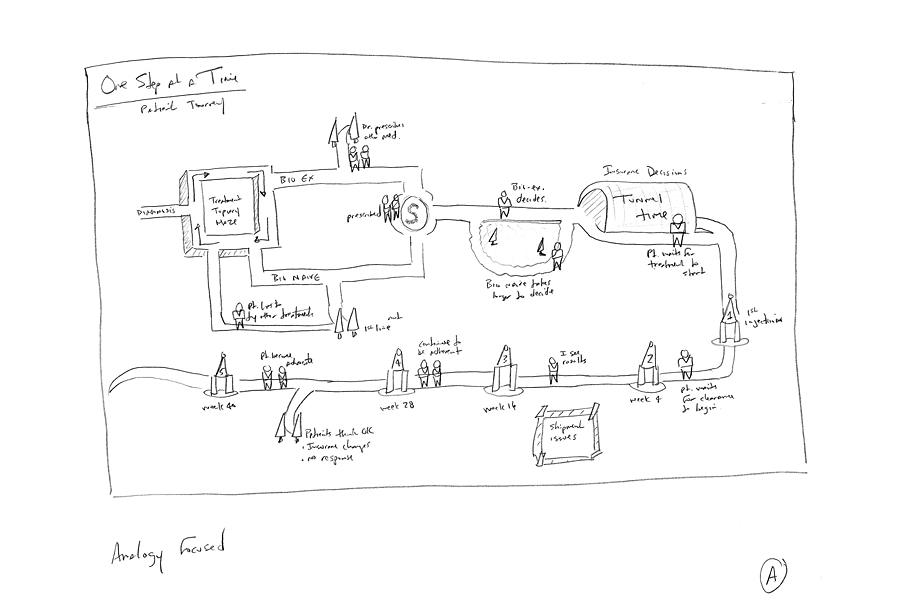 One Step at a Time
Patient Journey
Dr. prescribes
other med.
BIO EX
DIAGNOSIS
Treatment
Topical
Maze
prescribed
S
Bio-ex.
decides.
Insurance Decisions
Tunnel
time
Pt. waits for
treatment to
start
Bio naive takes
longer to decide
BIO NAIVE
Pt. lost to
by other treatments
1st line
not
1
1st
injection
continue to
be adherent
Pt. become
advocate
I see
results
5
4
3
2
week 40
week 28
week 16
week 4
Pt. waits
for clearance
to begin.
Shipment
issues
Patients think OK
• Insurance changes
• no response
Analogy Focused
A